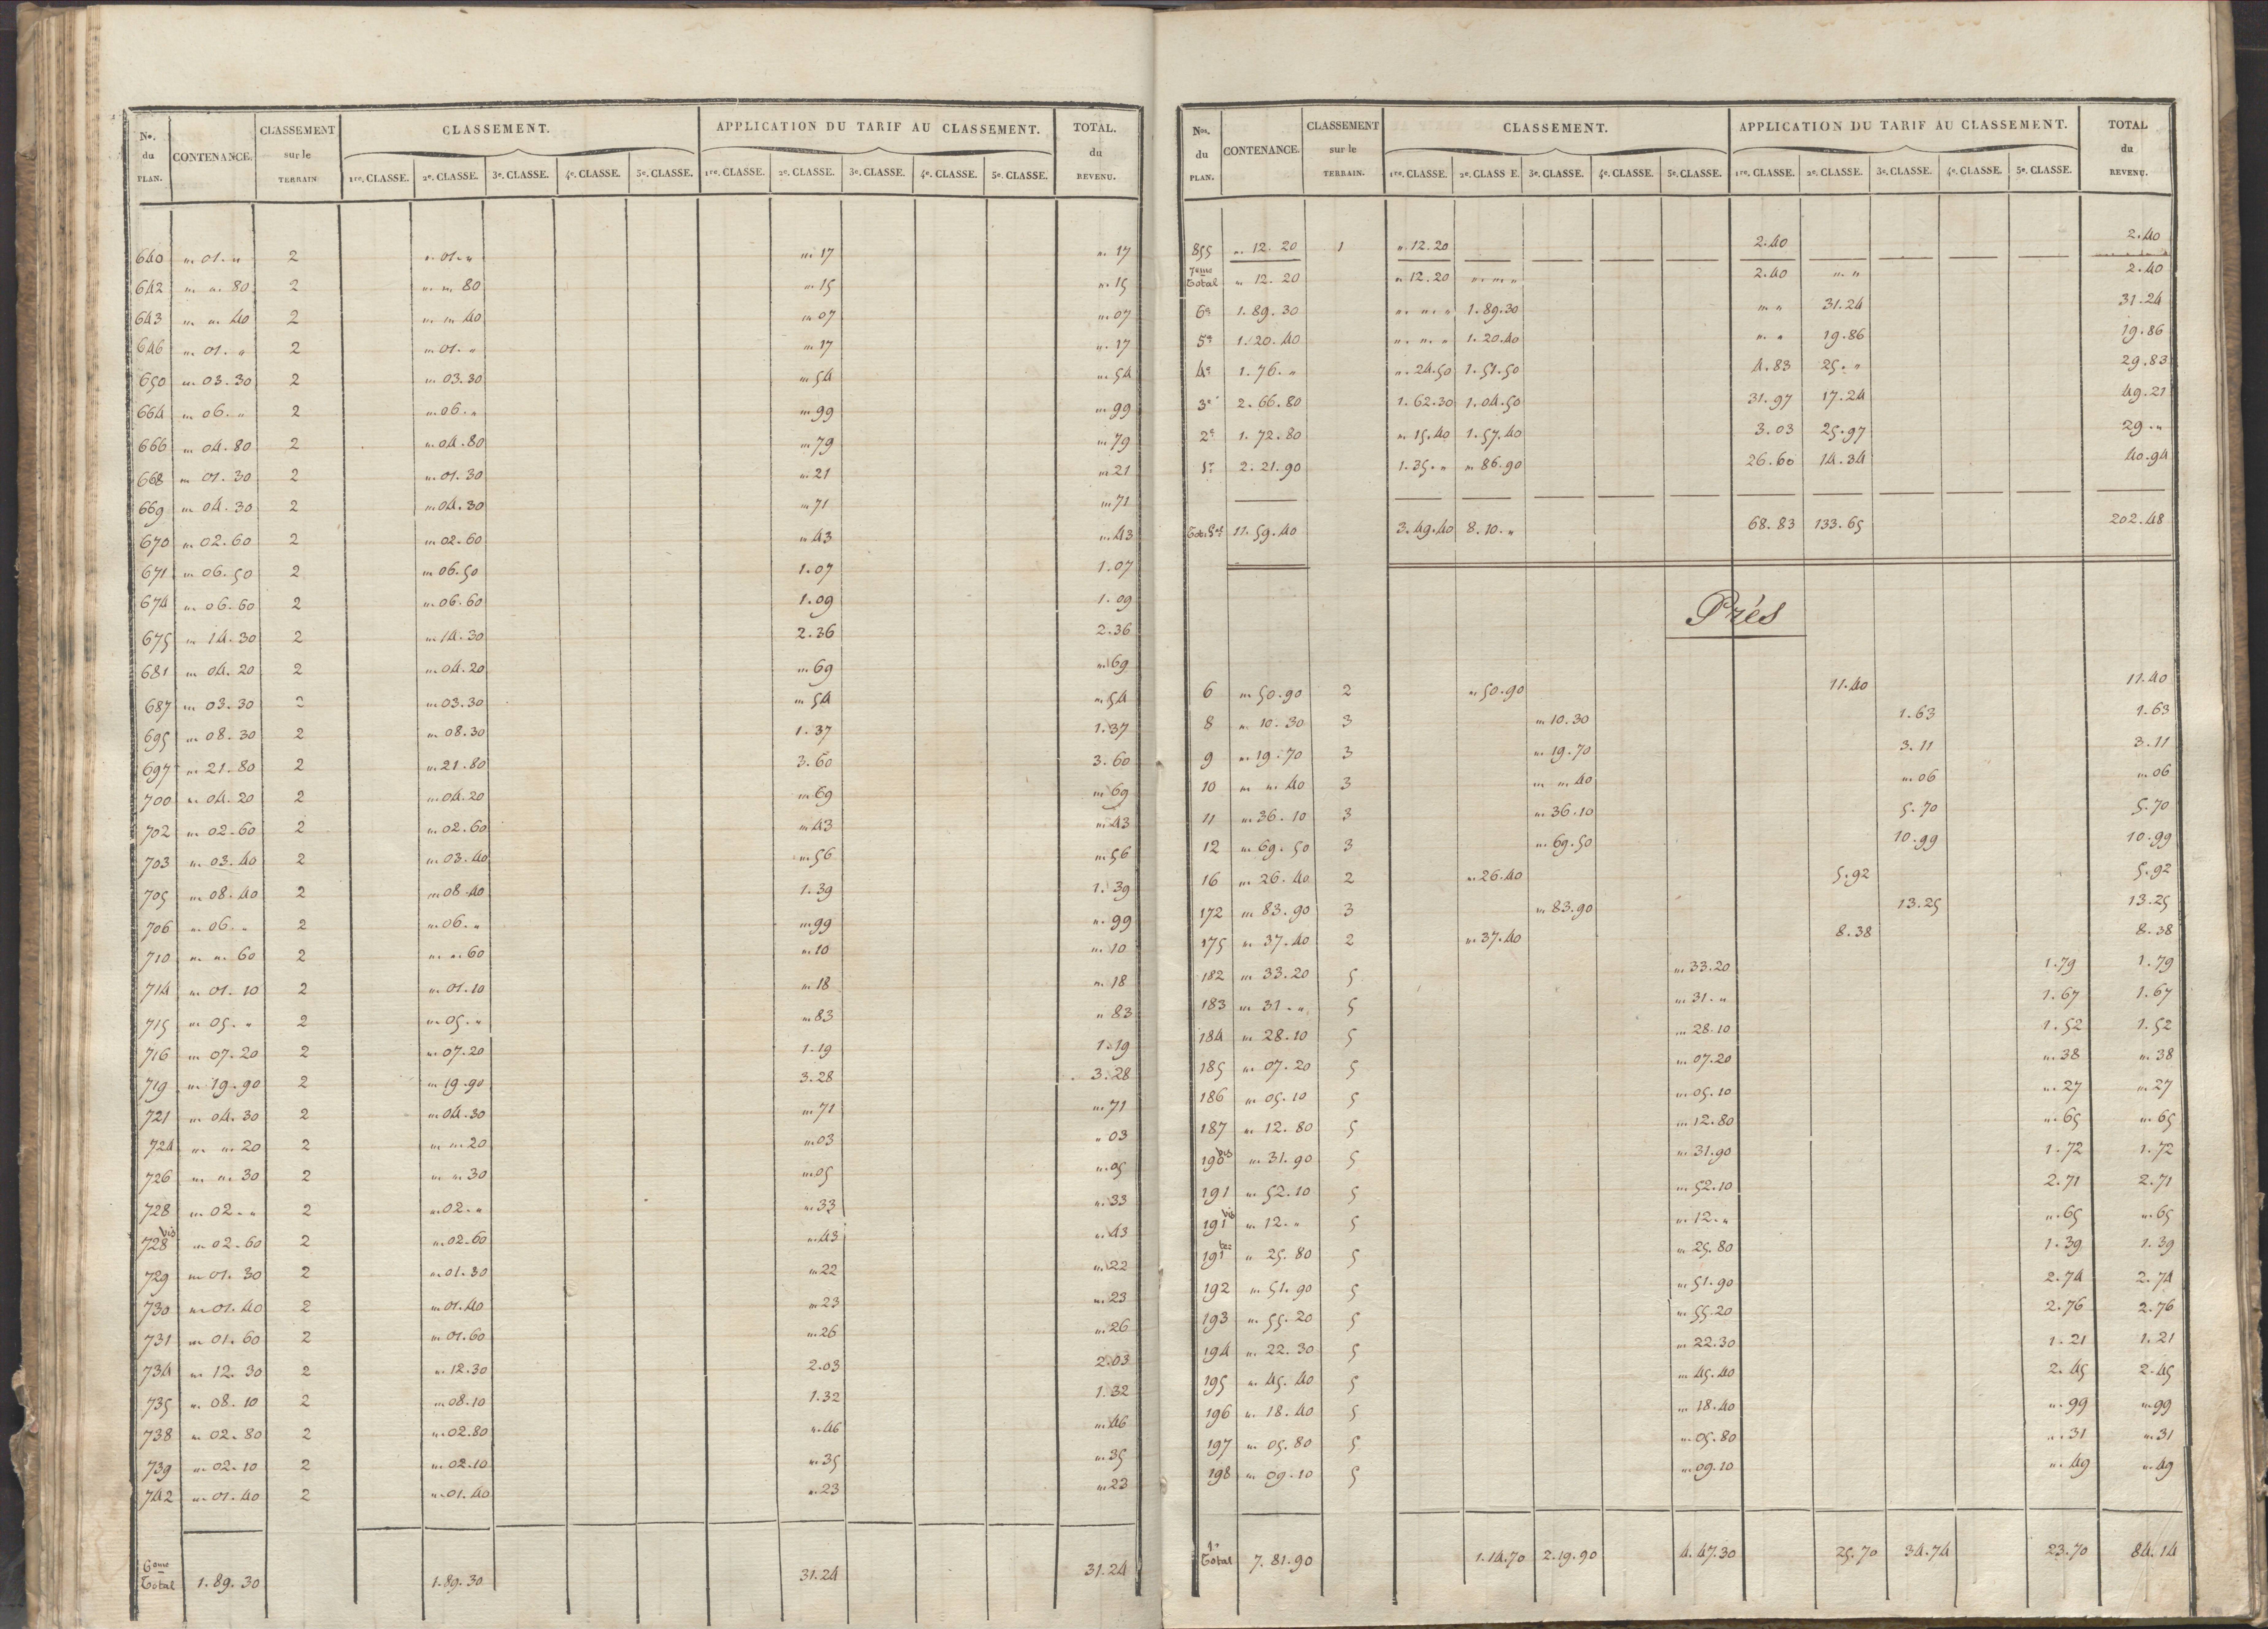 Nos. du PLAN. CONTENANCE. CLASSEMENT sur le TERRAIN CLASSEMENT. APPLICATION DU TARIF AU CLASSEMENT. TOTAL. du REVENU.
1re. CLASSE. 2e. CLASSE. 3e. CLASSE. 4e. CLASSE. 5e. CLASSE. 1re. CLASSE. 2e. CLASSE. 3e. CLASSE. 4e. CLASSE. 5e. CLASSE.
640 „ 01. „ 2 „ 01. „ „ 17 „ 17
642 „ „ 80 2 „ „ 80 „ 15 „ 15
643 „ „ 40 2 „ „ 40 „ 07 „ 07
646 „ 01. „ 2 „ 01. „ „ 17 „ 17
650 „ 03.30 2 „ 03.30 „ 54 „ 54
664 „ 06. „ 2 „ 06. „ „ 99 „ 99
666 „ 04.80 2 „ 04.80 „ 79 „ 79
668 „ 01.30 2 „ 01.30 „ 21 „ 21
669 „ 04.30 2 „ 04.30 „ 71 „ 71
670 „ 02.60 2 „ 02.60 „ 43 „ 43
671 „ 06.50 2 „ 06.50 1.07 1.07
674 „ 06.60 2 „ 06.60 1.09 1.09
675 „ 14.30 2 „ 14.30 2.36 2.36
681 „ 04.20 2 „ 04.20 „ 69 „ 69
687 „ 03.30 2 „ 03.30 „ 54 „ 54
695 „ 08.30 2 „ 08.30 1.37 1.37
697 „ 21.80 2 „ 21.80 3.60 3.60
700 „ 04.20 2 „ 04.20 „ 69 „ 69
702 „ 02.60 2 „ 02.60 „ 43 „ 43
703 „ 03.40 2 „ 03.40 „ 56 „ 56
705 „ 08.40 2 „ 08.40 1.39 1.39
706 „ 06. „ 2 „ 06. „ „ 99 „ 99
710 „ „ 60 2 „ „ 60 „ 10 „ 10
714 „ 01.10 2 „ 01.10 „ 18 „ 18
715 „ 05. „ 2 „ 05. „ „ 83 „ 83
716 „ 07.20 2 „ 07.20 1.19 1.19
719 „ 19.90 2 „ 19.90 3.28 3.28
721 „ 04.30 2 „ 04.30 „ 71 „ 71
724 „ „ 20 2 „ „ 20 „ 03 „ 03
726 „ „ 30 2 „ „ 30 „ 05 „ 05
728 „ 02. „ 2 „ 02. „ „ 33 „ 33
728 bis „ 02.60 2 „ 02.60 „ 43 „ 43
729 „ 01.30 2 „ 01.30 „ 22 „ 22
730 „ 01.40 2 „ 01.40 „ 23 „ 23
731 „ 01.60 2 „ 01.60 „ 26 „ 26
734 „ 12.30 2 „ 12.30 2.03 2.03
735 „ 08.10 2 „ 08.10 1.32 1.32
738 „ 02.80 2 „ 02.80 „ 46 „ 46
739 „ 02.10 2 „ 02.10 „ 35 „ 35
742 „ 01.40 2 „ 01.40 „ 23 „ 23
6eme Total 1.89.30 1.89.30 31.24 31.24
Nos. du PLAN. CONTENANCE. CLASSEMENT sur le TERRAIN. CLASSEMENT. APPLICATION DU TARIF AU CLASSEMENT. TOTAL du REVENU.
1re. CLASSE. 2e. CLASS E. 3e. CLASSE. 4e. CLASSE. 5e. CLASSE. 1re. CLASSE. 2e. CLASSE. 3e. CLASSE. 4e. CLASSE. 5e. CLASSE.
855 „ 12.20 1 „ 12.20 2.40 2.40
7eme Total „ 12.20 „ 12.20 „ „ „ 2.40 „ „ 2.40
6e 1.89.30 „ „ „ 1.89.30 „ „ 31.24 31.24
5e 1.20.40 „ „ „ 1.20.40 „ „ 19.86 19.86
4e 1.76. „ „ 24.50 1.51.50 4.83 25. „ 29.83
3e 2.66.80 1.62.30 1.04.50 31.97 17.24 49.21
2e 1.72.80 „ 15.40 1.57.40 3.03 25.97 29. „
1r 2.21.90 1.35. „ „ 86.90 26.60 14.34 40.94
Tot. Gal 11.59.40 3.49.40 8.10. „ 68.83 133.65 202.48
Prés
6 „ 50.90 2 „ 50.90 11.40 11.40
8 „ 10.30 3 „ 10.30 1.63 1.63
9 „ 19.70 3 „ 19.70 3.11 3.11
10 „ „ 40 3 „ „ 40 „ 06 „ 06
11 „ 36.10 3 „ 36.10 5.70 5.70
12 „ 69.50 3 „ 69.50 10.99 10.99
16 „ 26.40 2 „ 26.40 5.92 5.92
172 „ 83.90 3 „ 83.90 13.25 13.25
175 „ 37.40 2 „ 37.40 8.38 8.38
182 „ 33.20 5 „ 33.20 1.79 1.79
183 „ 31. „ 5 „ 31. „ 1.67 1.67
184 „ 28.10 5 „ 28.10 1.52 1.52
185 „ 07.20 5 „ 07.20 „ 38 „ 38
186 „ 05.10 5 „ 05.10 „ 27 „ 27
187 „ 12.80 5 „ 12.80 „ 65 „ 65
190 bis „ 31.90 5 „ 31.90 1.72 1.72
191 „ 52.10 5 „ 52.10 2.71 2.71
191 bis „ 12. „ 5 „ 12. „ „ 65 „ 65
191 ter „ 25.80 5 „ 25.80 1.39 1.39
192 „ 51.90 5 „ 51.90 2.74 2.74
193 „ 55.20 5 „ 55.20 2.76 2.76
194 „ 22.30 5 „ 22.30 1.21 1.21
195 „ 45.40 5 „ 45.40 2.45 2.45
196 „ 18.40 5 „ 18.40 „ 99 „ 99
197 „ 05.80 5 „ 05.80 „ 31 „ 31
198 „ 09.10 5 „ 09.10 „ 49 „ 49
1r Total 7.81.90 1.14.70 2.19.90 4.47.30 25.70 34.74 23.70 84.14